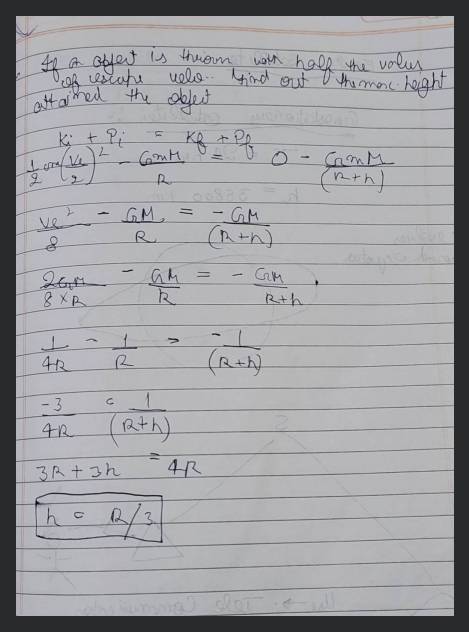 If a object is thrown with half the value
of escape velo.. find out the max. height
attained the object
Ki + Pi = Kf + Pf
1/2 m (Ve/2)² - GmM/R = 0 - GmM/(R+h)
Ve²/8 - GM/R = -GM/(R+h)
2GM/8×R - GM/R = - GM/R+h
1/4R - 1/R = -1/(R+h)
-3/4R = 1/(R+h)
3R + 3h = 4R
h = R/3